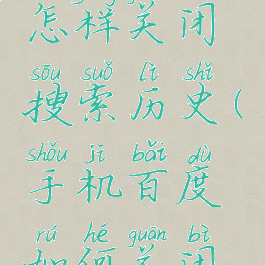 怎样关闭
sōu suǒ lì shǐ
搜索历史(
shǒu jī bǎi dù
手机百度
rú hé guān bì
如何关闭